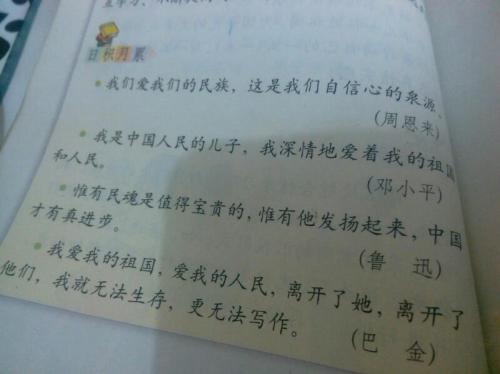 日积月累
我们爱我们的民族，这是我们自信心的泉源。
（周恩来）
我是中国人民的儿子，我深情地爱着我的祖国
和人民。
（邓小平）
惟有民魂是值得宝贵的，惟有他发扬起来，中国
才有真进步。
（鲁 迅）
我爱我的祖国，爱我的人民，离开了她，离开了
他们，我就无法生存，更无法写作。
（巴 金）